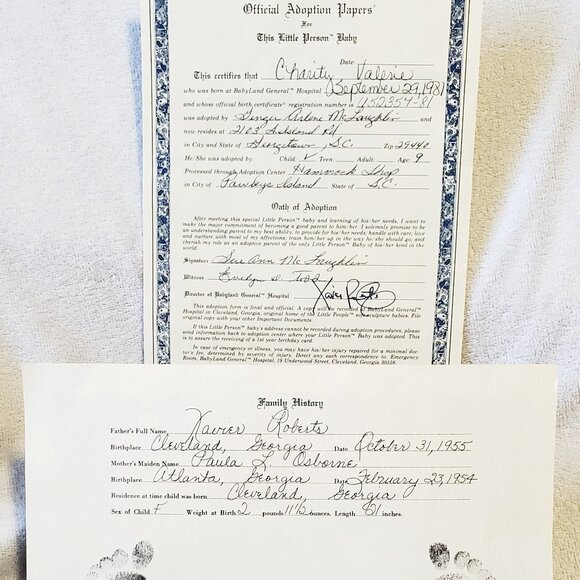 Official Adoption Papers
For
This Little Person™ Baby
Date:
This certifies that Charity Valerie
who was born at BabyLand General™ Hospital September 29, 1981
and whose official birth certificate registration number is A52357-81
was adopted by: Arlene McLaughlin and
now resides at 2103 S. Island Rd
in City and State of Georgetown, S.C. Zip 29440
He/She was adopted by: Child ✓ Teen: Adult: Age: 9
Processed through Adoption Center Hammock Shop
in City of Pawleys Island State of S.C.
Oath of Adoption
After meeting this special Little Person™ baby and learning of his/her needs, I want to
make the major commitment of becoming a good parent to him/her. I solemnly promise to be
an understanding parent to my best ability, to provide for his/her needs, handle with care; love
and nurture with most of my affections; train him/her up in the way he/she should go; and
cherish my role as an adoptive parent of the only Little Person™ Baby of his/her kind in the
world
Signature Sue Ann McLaughlin
Witness Evelyn D. Todd
Director of Babyland General™ Hospital Xavier Roberts
This adoption form is final and official. A copy will be recorded at BabyLand General™
Hospital in Cleveland, Georgia, original home of the Little People™ soft sculpture babies. File
original copy with your other Important Documents.
If this Little Person™ baby's address cannot be recorded during adoption procedures, please
send information back to adoption center where your Little Person™ Baby was adopted. This
is to assure the receiving of a 1st year birthday card.
In case of emergency or illness, you may have his/her injury repaired for a minimal doc-
tor's fee, determined by severity of injury. Direct any such correspondence to: Emergency
Room, BabyLand General™ Hospital, 19 Underwood Street, Cleveland, Georgia 30528.
Family History
Father's Full Name Xavier Roberts
Birthplace Cleveland, Georgia Date October 31, 1955
Mother's Maiden Name Paula L. Osborne
Birthplace Atlanta, Georgia Date February 23, 1954
Residence at time child was born Cleveland, Georgia
Sex of Child F Weight at Birth 2 pounds 11 1/2 ounces. Length 21 inches.